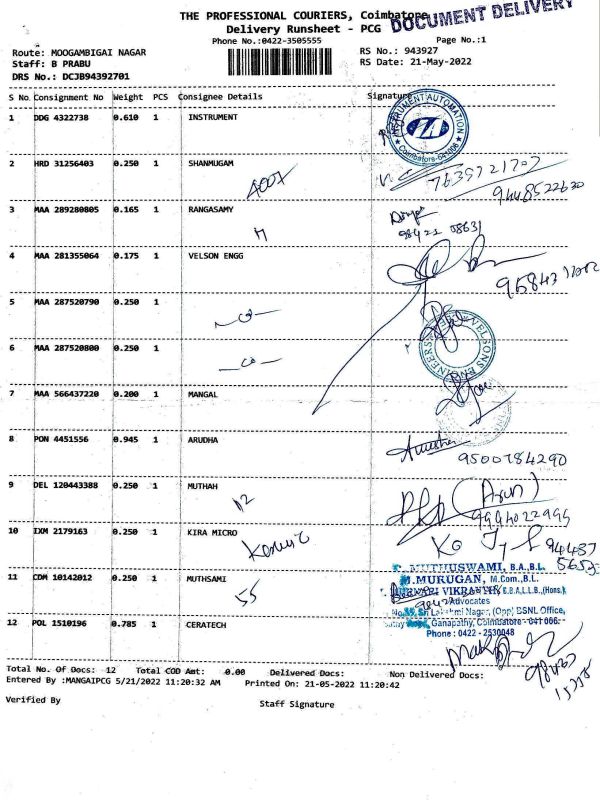 THE PROFESSIONAL COURIERS, Coimbatore
DOCUMENT DELIVERY
Delivery Runsheet - PCG
Phone No.:0422-3505555
Page No.:1
Route: MOOGAMBIGAI NAGAR
RS No.: 943927
Staff: B PRABU
RS Date: 21-May-2022
DRS No.: DCJB94392701
S No. Consignment No Weight PCS Consignee Details Signature
1 DDG 4322738 0.610 1 INSTRUMENT
INSTRUMENT AUTOMATION
Coimbatore-641 006
2 HRD 31256403 0.250 1 SHANMUGAM
7639721703
9448522620
3 MAA 289280805 0.165 1 RANGASAMY
98421 08631
4 MAA 281355064 0.175 1 VELSON ENGG
5 MAA 287520790 0.250 1
6 MAA 287520800 0.250 1
VELSONS ENGINEERS
7 MAA 566437220 0.200 1 MANGAL
8 PON 4451556 0.945 1 ARUDHA
9500784290
9 DEL 120443388 0.250 1 MUTHAH
(Arun)
9994022995
10 IXM 2179163 0.250 1 KIRA MICRO
94487
11 CDM 10142012 0.250 1 MUTHSAMI
55
MUTHUSWAMI, B.A.,B.L.
M.MURUGAN, M.Com.,B.L.
VIKRANTH, B.B.A.,L.L.B.,(Hons.),
Advocates
Lakshmi Nagar, (Opp) BSNL Office,
Ganapathy, Coimbatore - 641 006.
Phone : 0422 - 2530048
12 POL 1510196 0.785 1 CERATECH
Total No. Of Docs: 12 Total COD Amt: 0.00 Delivered Docs: Non Delivered Docs:
Entered By :MANGAIPCG 5/21/2022 11:20:32 AM Printed On: 21-05-2022 11:20:42
Verified By
Staff Signature